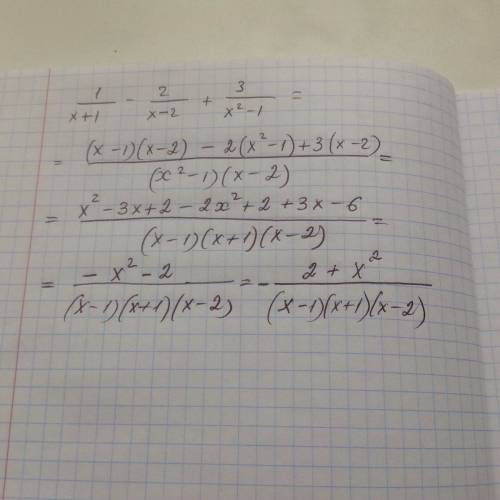 1/(x+1) - 2/(x-2) + 3/(x²-1) =
= ((x-1)(x-2) - 2(x²-1)+3(x-2))/((x²-1)(x-2)) =
= (x²-3x+2-2x²+2+3x-6)/((x-1)(x+1)(x-2)) =
= (-x²-2)/((x-1)(x+1)(x-2)) = - (2+x²)/((x-1)(x+1)(x-2))